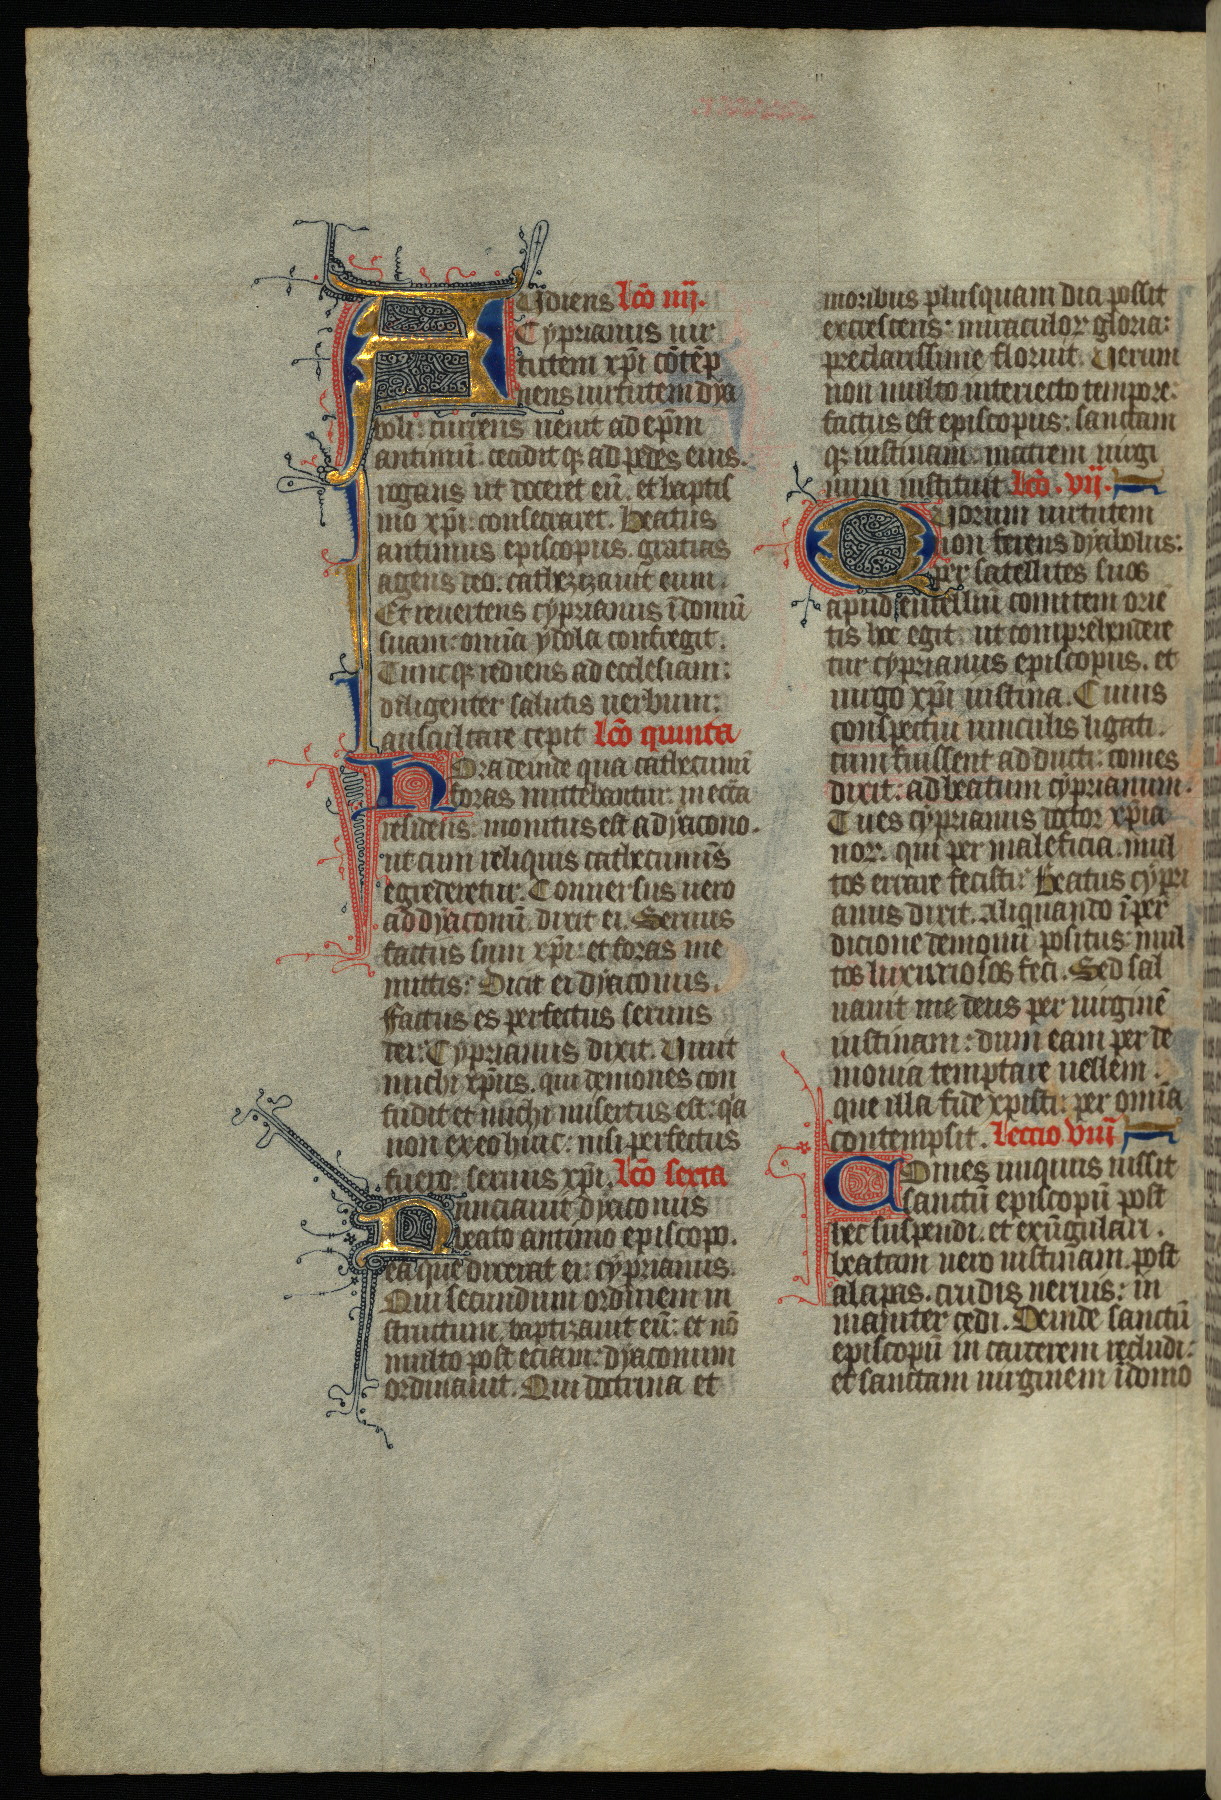 Audiens lcō iiij.
Cyprianus uir
tutem xp̄i cōtēp
nens uirtutem dya
boli: currens uenit ad ep̄m
antimū. cecidit qꝫ ad pedes eius.
rogans ut doceret eū. et baptis
mo xp̄i: consecraret. Beatus
antimus episcopus. gratias
agens deo. cathezizauit eum.
Et reuertens cyprianus ī domū
suam: omīa ydola confregit.
Tuncqꝫ rediens ad ecclesiam:
diligenter salutis uerbum:
auscultare cepit lcō quinta
Hora deinde qua cathecumī
foras mittebantur: in ecc̄a
residens: monitus est a dyacono.
ut cum reliquis cathecumīs
egrederetur. Conuersus uero
ad dyaconū. dixit ei. Seruus
factus sum xp̄i: et foras me
mittis: Dicit ei dyaconus.
Factus es perfectus seruus
dei: Cyprianus dixit. Viuit
michi xp̄us. qui demones con
fudit et michi misertus est: q̄a
non exeo hinc: nisi perfectus
fuero: seruus xp̄i. lcō sexta
Nunciauit dyaconus
beato antimo episcopo.
ea que dixerat ei: cyprianus.
Qui secundum ordinem in
structum. baptizauit eū: et nō
multo post eciam: dyaconum
ordinauit. Qui doctrina et
moribus plusquam dici possit
excrescens: miraculoꝝ gloria:
preclarissime floruit. Uerum
non multo interiecto tempore:
factus est episcopus: sanctam
qꝫ iustinam. matrem uirgi
num instituit. lcō. vij.
Quorum uirtutem
non ferens dyabolus:
per satellites suos
apud eutellū comitem oriē
tis hoc egit. ut comprehendere
tur cyprianus episcopus. et
uirgo xp̄i iustina. Cuius
conspectui uinculis ligati.
cum fuissent adducti: comes
dixit: ad beatum cyprianum.
Tu es cyprianus doctor xp̄ia
noꝝ. qui per maleficia. mul
tos errare fecisti: Beatus cypri
anus dixit. Aliquando ī per
dicione demonū positus: mul
tos luxuriosos feci. Sed sal
uauit me deus per uirginē
iustinam: dum eam per de
monia temptare uellem.
que illa fide xpisti: per omīa
contempsit. Leccio viii
Comes iniquus iussit
sanctū episcopū post
hec suspendi. et exūgulari.
beatam uero iustinam. post
alapas. crudis neruis: in
maniter cedi. Deinde sanctū
episcopū in carcerem recludi:
et sanctam uirginem ī domo